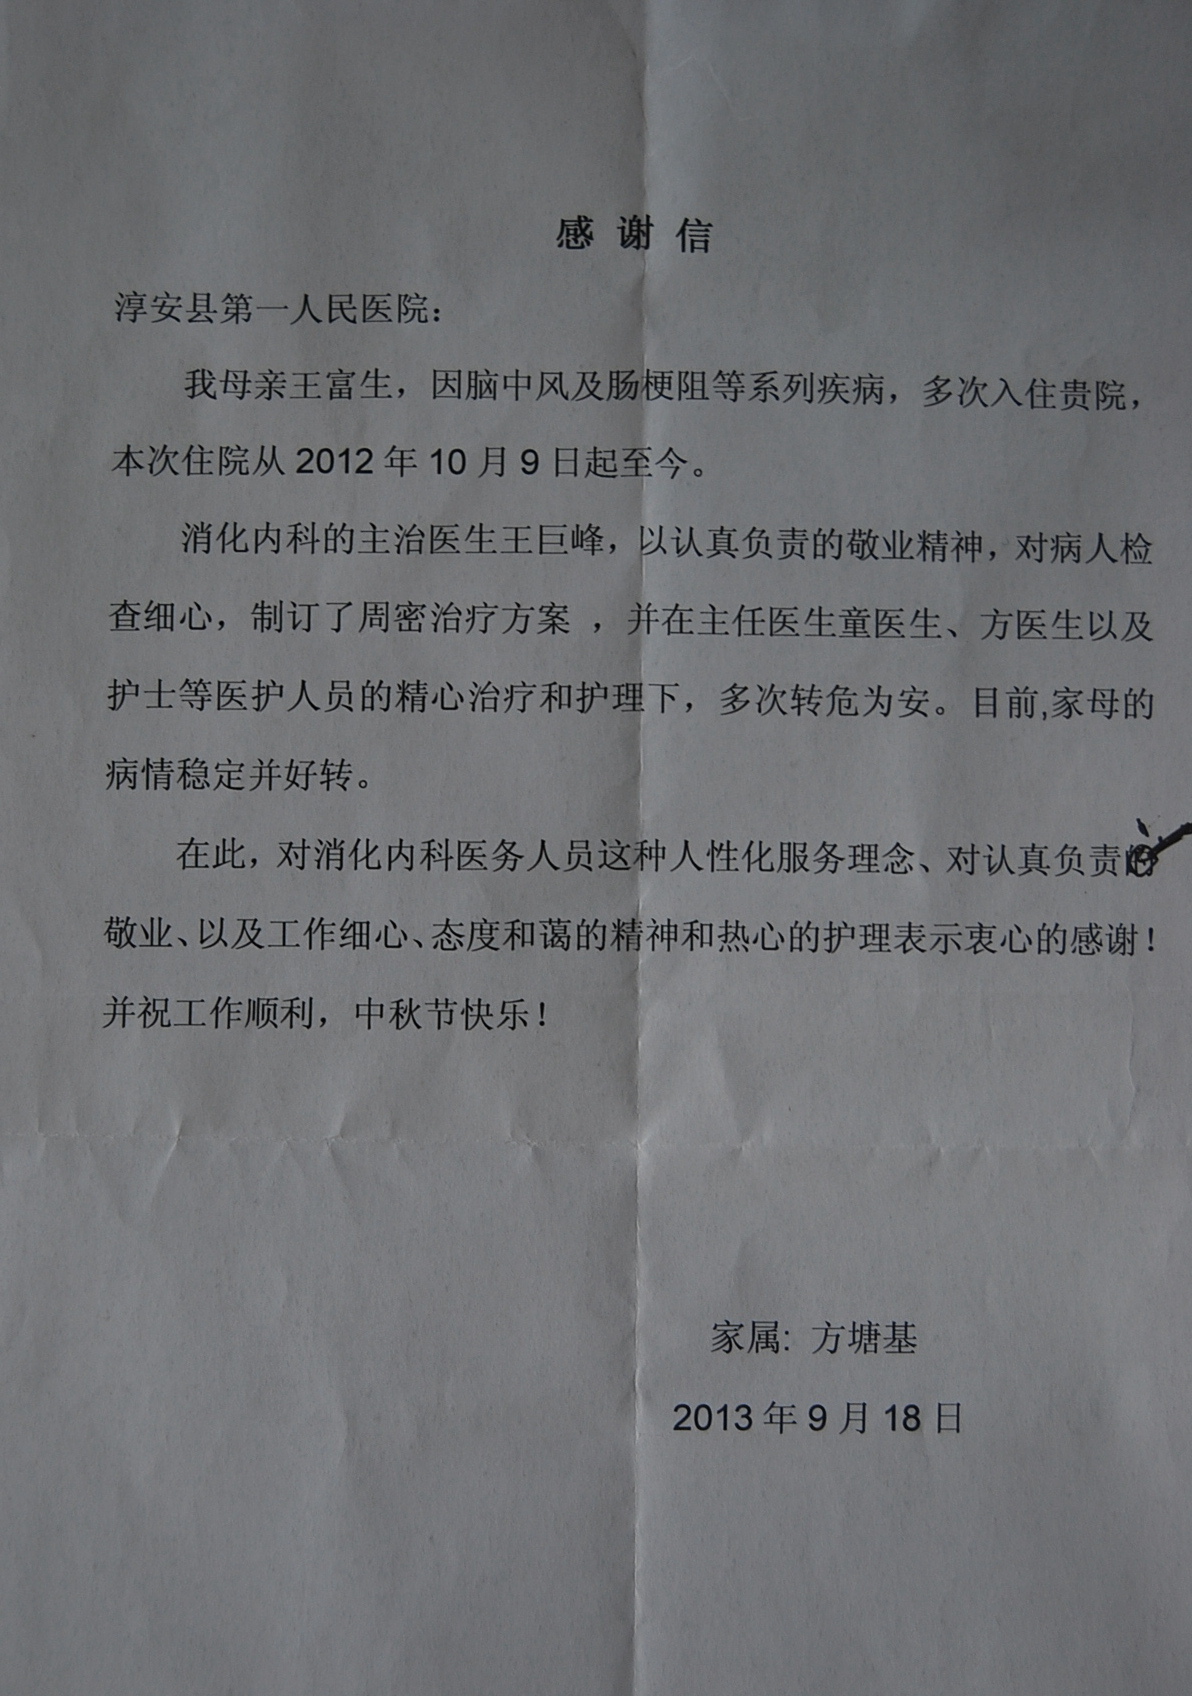 感 谢 信
淳安县第一人民医院：
我母亲王富生，因脑中风及肠梗阻等系列疾病，多次入住贵院，
本次住院从 2012 年 10 月 9 日起至今。
消化内科的主治医生王巨峰，以认真负责的敬业精神，对病人检
查细心，制订了周密治疗方案 ，并在主任医生童医生、方医生以及
护士等医护人员的精心治疗和护理下，多次转危为安。目前,家母的
病情稳定并好转。
在此，对消化内科医务人员这种人性化服务理念、对认真负责
敬业、以及工作细心、态度和蔼的精神和热心的护理表示衷心的感谢！
并祝工作顺利，中秋节快乐！
家属: 方塘基
2013 年 9 月 18 日